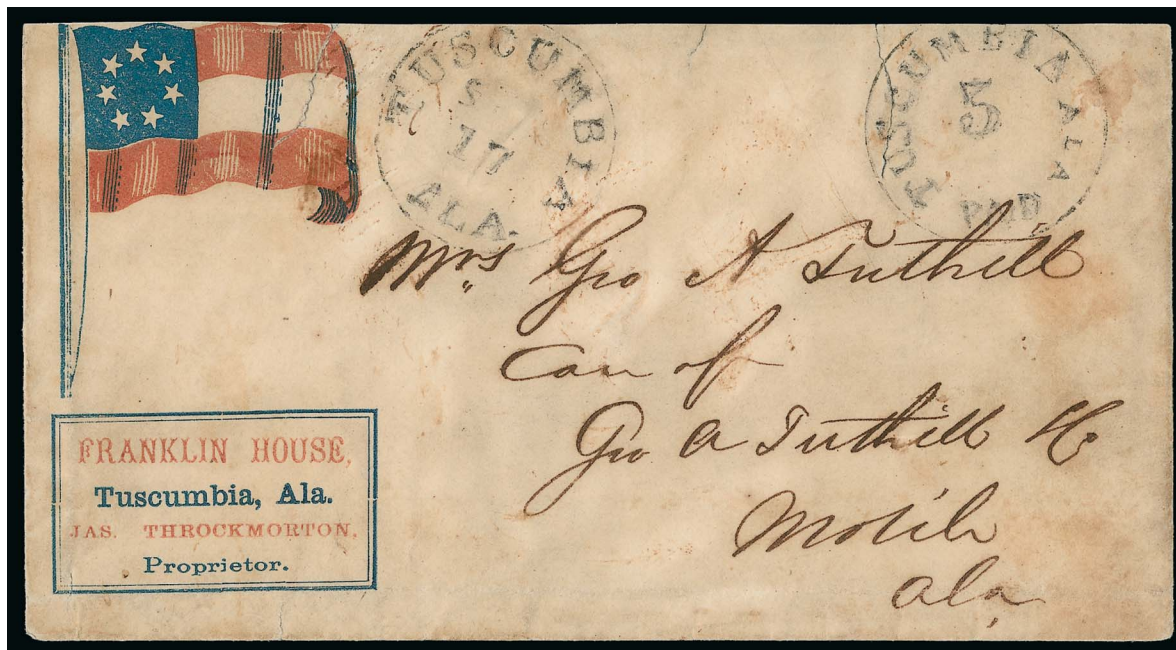 TUSCUMBIA
S
17
ALA.
TUSCUMBIA ALA
5
PAID
Mrs Geo A Tuthill
Care of
Geo A Tuthill
Mobile
Ala,
FRANKLIN HOUSE,
Tuscumbia, Ala.
JAS. THROCKMORTON,
Proprietor.